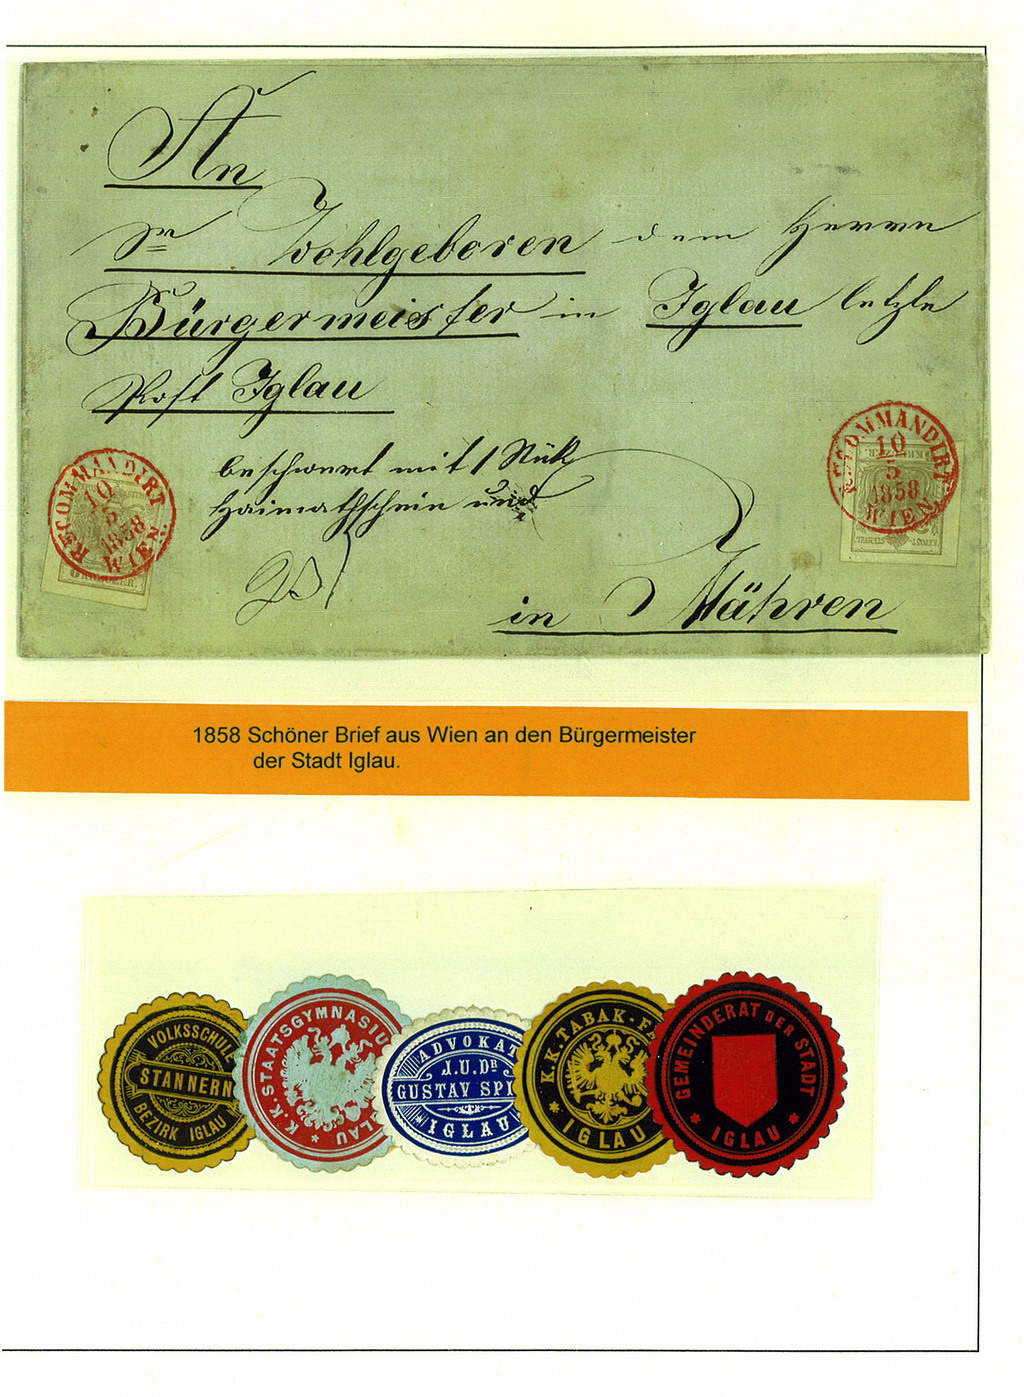 An
Sr Wohlgeboren dem Herrn
Bürgermeister in Iglau letzte
Post Iglau
beschwert mit 1 Stük
Haimathschein und
in Mähren
RECOMMANDIRT
10
5
1858
WIEN
KREUZER.
RECOMMANDIRT
10
5
1858.
WIEN
KREUZER.
STEMPEL
1858 Schöner Brief aus Wien an den Bürgermeister
der Stadt Iglau.
VOLKSSCHULE
STANNERN
BEZIRK IGLAU
K.K. STAATSGYMNASIU
IGLAU
ADVOKAT
J.U.DR
GUSTAV SPI
IGLAU
K.K. TABAK-F
IGLAU
GEMEINDERAT DER STADT
IGLAU